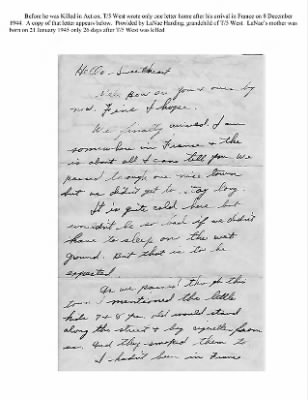 Before he was Killed in Action, T/5 West wrote only one letter home after his arrival in France on 8 December
1944. A copy of that letter appears below. Provided by LaNae Harding, grandchild of T/5 West. LaNae's mother was
born on 21 January 1945 only 26 days after T/5 West was killed
Hello - Sweetheart
on you & ours by
now. Fine I hope.
We finally arrived. I am
somewhere in France & the
is about all I can tell you. We
passed through one nice town
but we didn't get to stay long.
It is quite cold here but
wouldn't be so bad if we didn't
have to sleep on the wet
ground. But that is to be
expected.
As we passed through this
town I mentioned the little
kids 7 & 8 yrs. old would stand
along the street & beg cigarettes from
us. And they smoked them to
I hadn't been in France